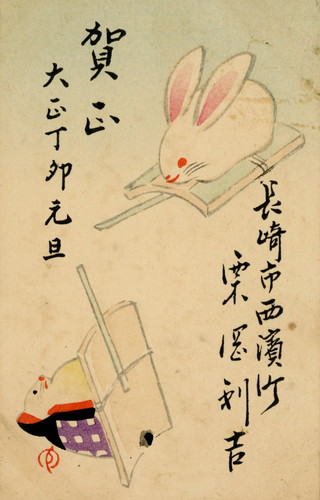 賀正
大正丁卯元旦
長崎市西濱町
栗岡利吉